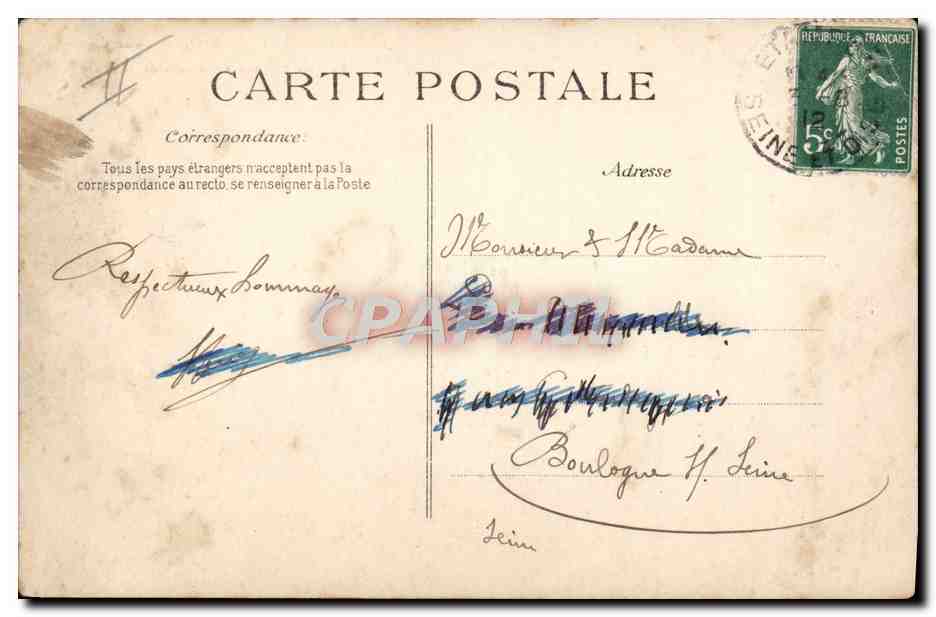 II
CARTE POSTALE
REPUBLIQUE FRANÇAISE
5c
POSTES
12
SEINE ET OISE
Correspondance:
Tous les pays étrangers n'acceptent pas la
correspondance au recto, se renseigner à la Poste
Respectueux hommage
Adresse
Monsieur & Madame
Boulogne s/ Seine
Seine
CPAPHIL